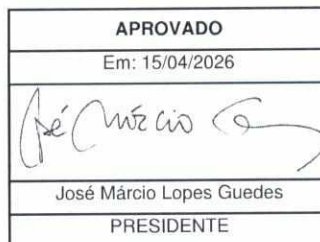 APROVADO
Em: 15/04/2026
José Márcio
José Márcio Lopes Guedes
PRESIDENTE